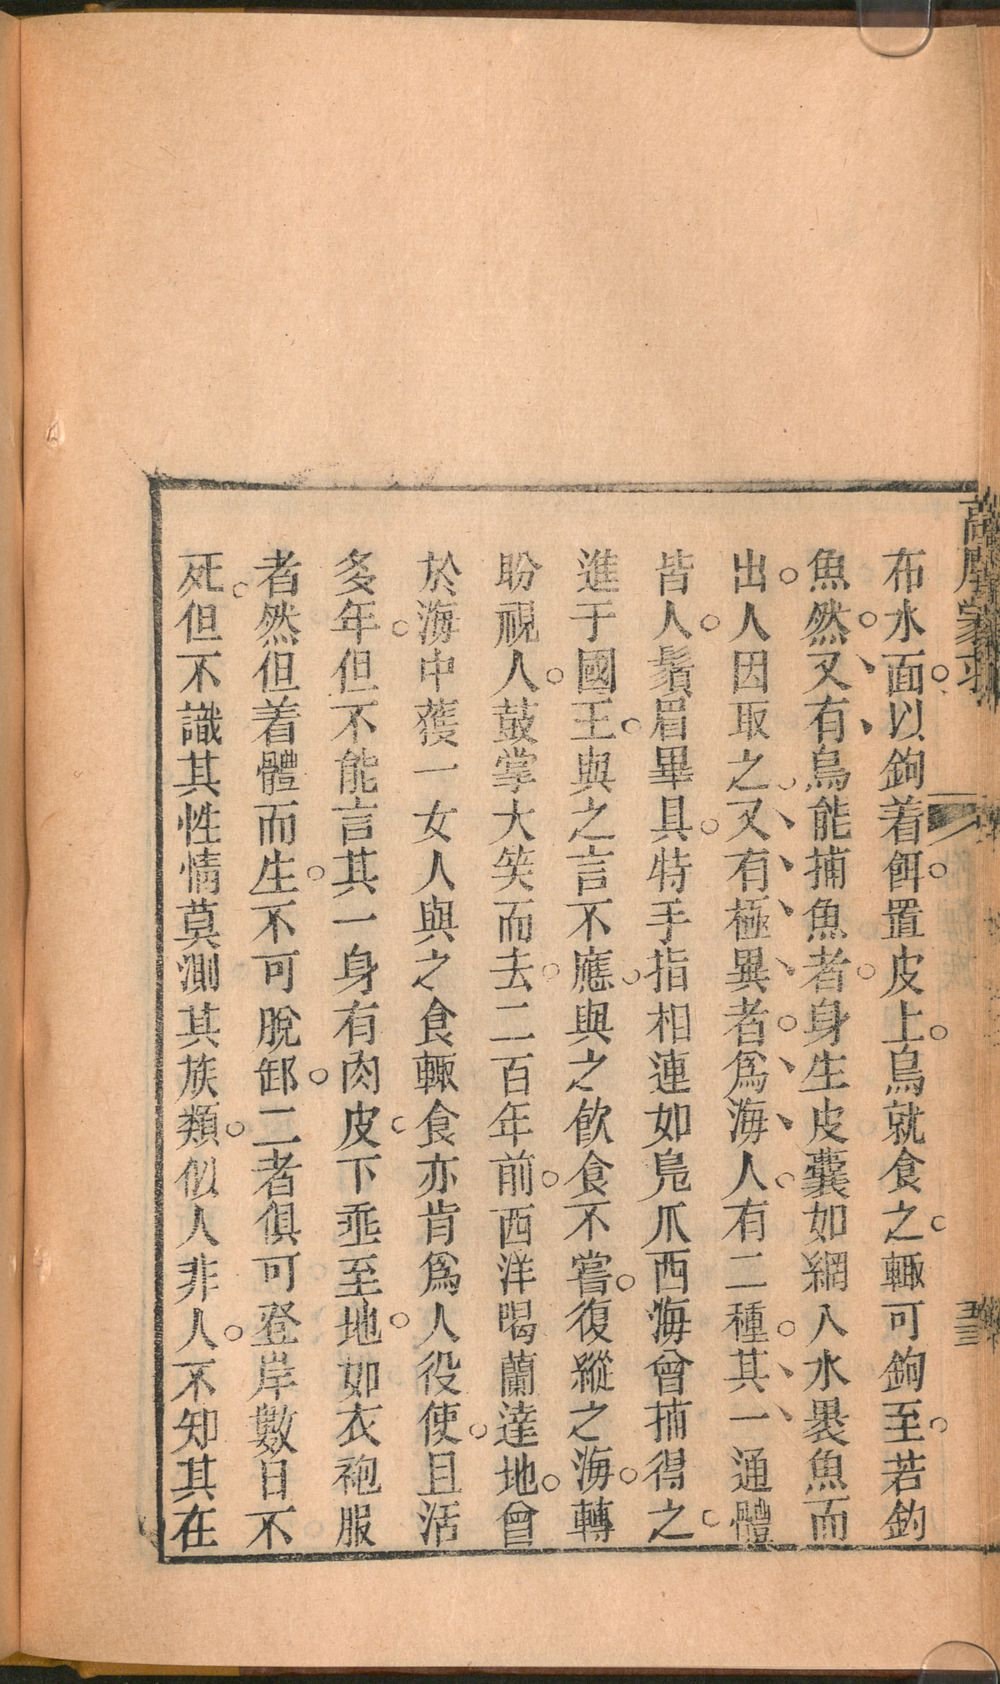 布水面以鉤着餌置皮上鳥就食之輙可鉤至若釣
魚然又有鳥能捕魚者身生皮囊如網入水裹魚而
出人因取之又有極異者爲海人有二種其一通體
皆人鬚眉畢具特手指相連如鳧爪西海曾捕得之
進于國王與之言不應與之飲食不嘗復縱之海轉
盼視人鼓掌大笑而去二百年前西洋喝蘭達地曾
於海中獲一女人與之食輙食亦肯爲人役使且活
多年但不能言其一身有肉皮下垂至地如衣袍服
者然但着體而生不可脫卸二者俱可登岸數日不
死但不識其性情莫測其族類似人非人不知其在